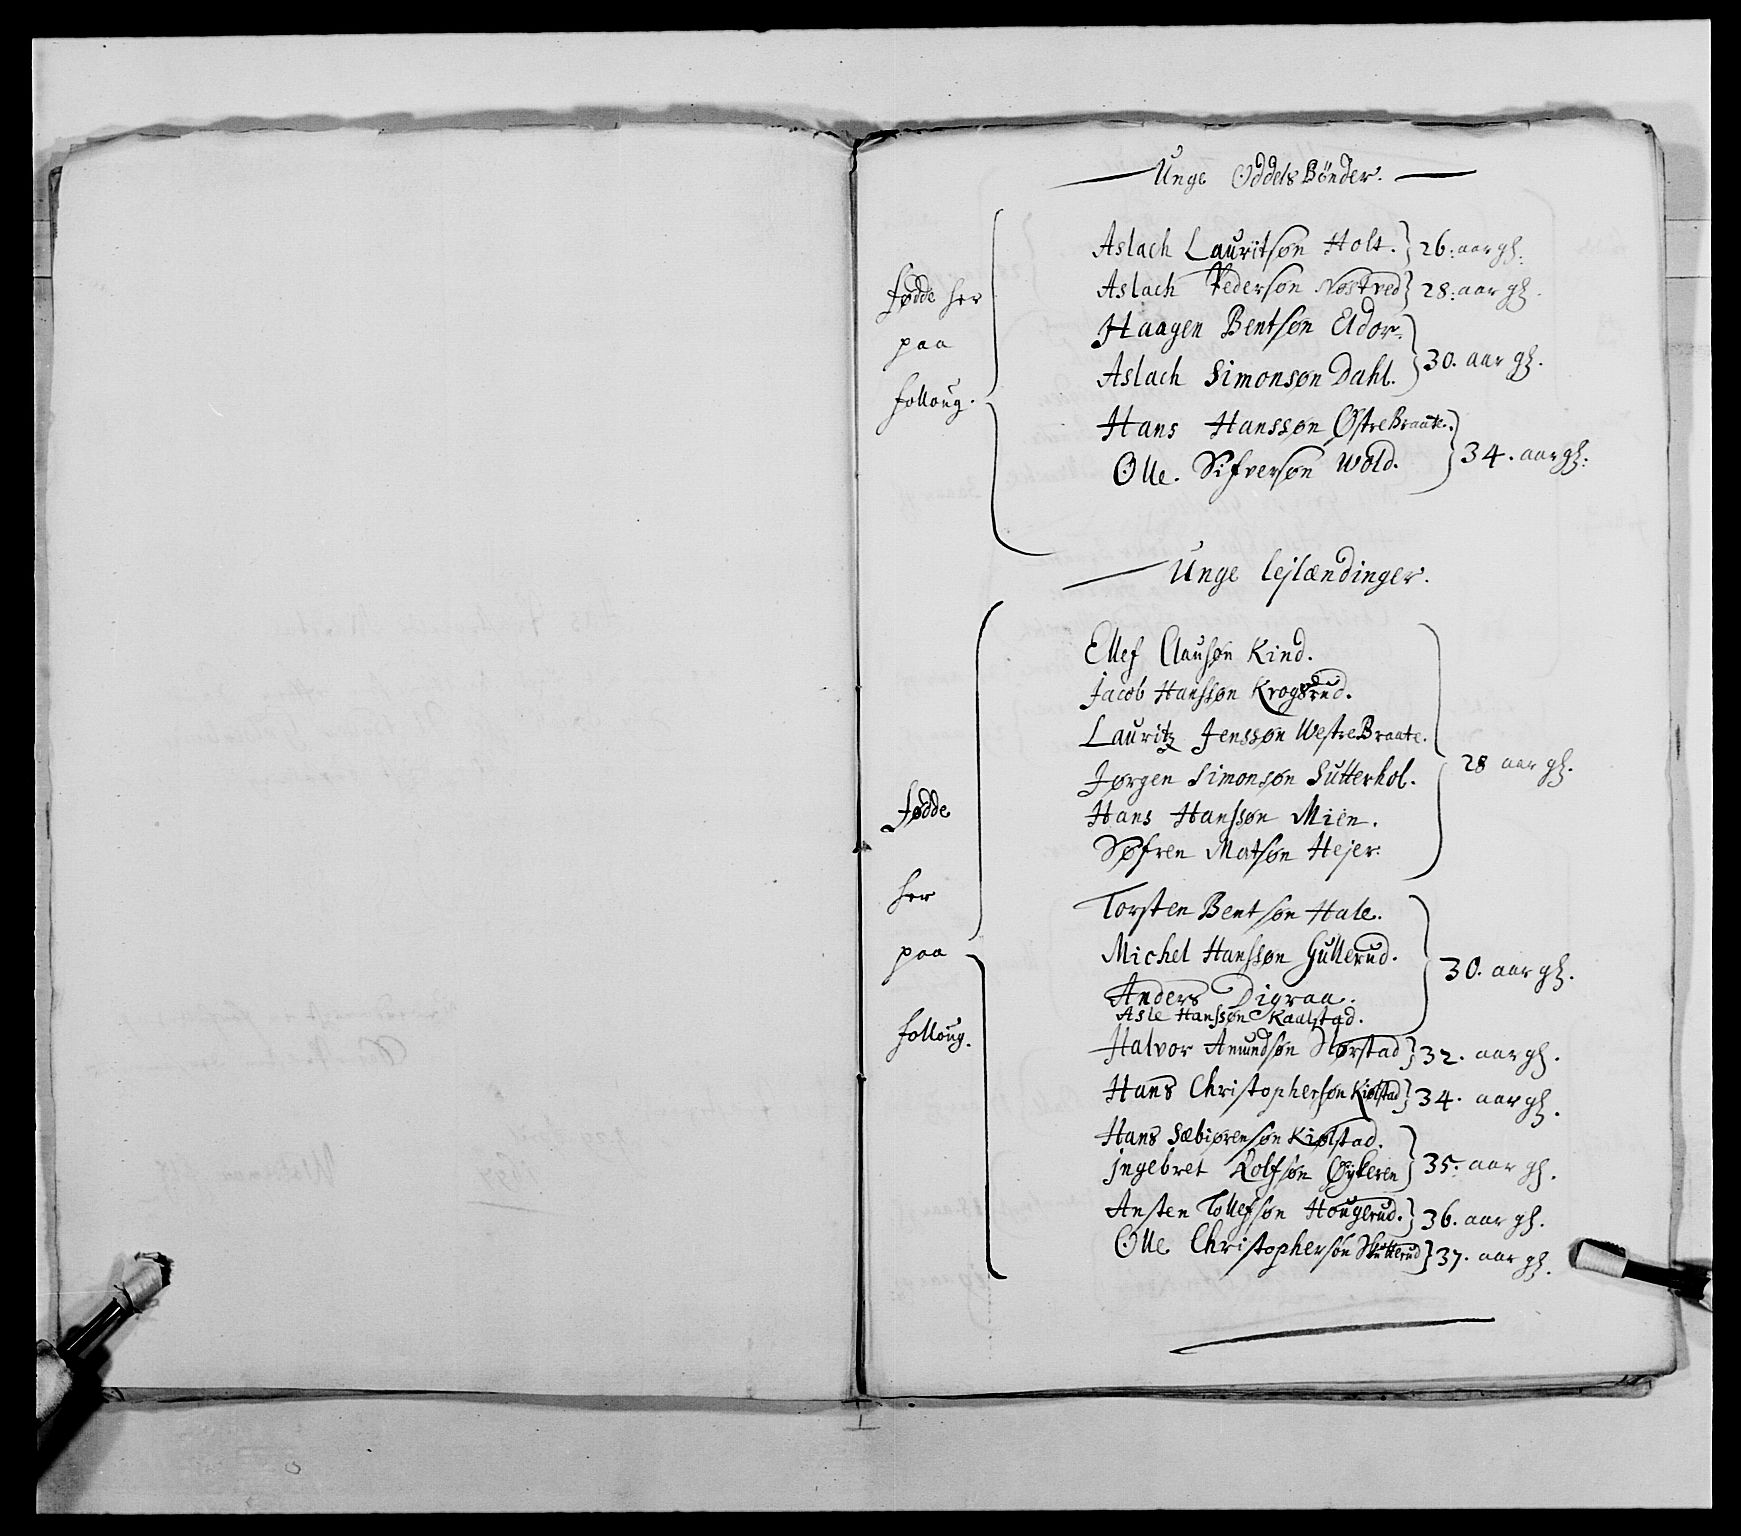 Unge OddelsBönder.
fødde her
paa
folloug.
Aslach Lauritsøn Holt. 26: aar gl:
Aslach Pedersøn Nostved 28: aar gl.
Haagen Bentsøn Eldor.
Aslach Simonsøn Dahl. 30. aar gl.
Hans Hanssøn ØstreBraate.
Olle. Sifversøn Wold. 34. aar gl:
Unge lejlændinger.
fødde
her
paa
folloug.
Ellef Clausøn Kind.
Jacob Hanssøn Krogsrud.
Lauritz Jenssøn WestreBraate.
Jørgen Simonsøn Sutterhol.
Hans Hanssøn Mien.
Søfren Matsøn Hejer:
28 aar gl.
Torsten Bentsøn Hale.
Michel Hanssøn Gullerud.
Anders Digraa.
Asle Hanssøn Kaalstad.
30. aar gl.
Halvor Amundsøn Norstad 32. aar gl.
Hans Christophersøn Kiølstad 34. aar gl.
Hans Sæbiørensøn Kiølstad.
Jngebret Rolfsøn Øykeren 35. aar gl.
Ansten Tollefsøn Hougerud. 36. aar gl.
Olle Christophersøn Skutterud 37. aar gl.